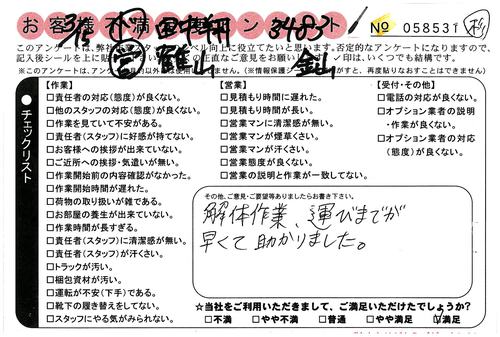 お客様不満アンケート
№ 058531 杉
このアンケートは、弊社
向上に役立てたいと思います。否定的なアンケートになりますので、
記入後シールを上に貼
の正直なご意見をお願い
印は、いくつでも結構です。
チェックリスト
【作業】
□責任者の対応(態度)が良くない。
□他のスタッフの対応(態度)が良くない。
□作業を見ていて不安がある。
□責任者(スタッフ)に好感が持てない。
□お客様への挨拶が出来ていない。
□ご近所への挨拶・気遣いが無い。
□作業開始前の内容確認がなかった。
□作業開始時間が遅れた。
□荷物の取り扱いが雑である。
□お部屋の養生が出来ていない。
□作業時間が長すぎる。
□責任者(スタッフ)に清潔感が無い。
□責任者(スタッフ)が汗くさい。
□トラックが汚い。
□梱包資材が汚い。
□運転が不安(下手)である。
□靴下の履き替えをしてない。
□スタッフにやる気がみられない。
【営業】
□見積もり時間に遅れた。
□見積もり時間が長い。
□営業マンに清潔感が無い。
□営業マンが煙草くさい。
□営業マンが汗くさい。
□営業態度が良くない。
□営業の説明と作業が一致してない。
【受付・その他】
□電話の対応が良くない。
□オプション業者の説明
・作業が良くない。
□オプション業者の対応
(態度)が良くない。
その他、ご意見・ご要望等ありましたらお書き下さい。
解体作業、運びまでが
早くて助かりました。
☆当社をご利用いただきまして、ご満足いただけたでしょうか?
□不満 □やや不満 □普通 □やや満足 ☑満足